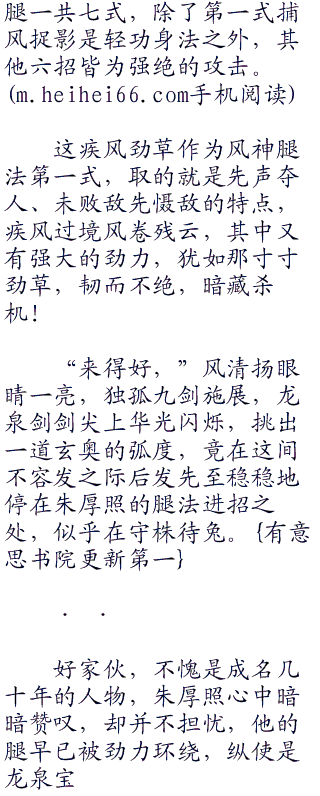 腿一共七式，除了第一式捕
风捉影是轻功身法之外，其
他六招皆为强绝的攻击。
(m.heihei66.com手机阅读)
这疾风劲草作为风神腿
法第一式，取的就是先声夺
人、未败敌先慑敌的特点，
疾风过境风卷残云，其中又
有强大的劲力，犹如那寸寸
劲草，韧而不绝，暗藏杀
机！
“来得好，”风清扬眼
睛一亮，独孤九剑施展，龙
泉剑剑尖上华光闪烁，挑出
一道玄奥的弧度，竟在这间
不容发之际后发先至稳稳地
停在朱厚照的腿法进招之
处，似乎在守株待兔。{有意
思书院更新第一}
． ．
好家伙，不愧是成名几
十年的人物，朱厚照心中暗
暗赞叹，却并不担忧，他的
腿早已被劲力环绕，纵使是
龙泉宝